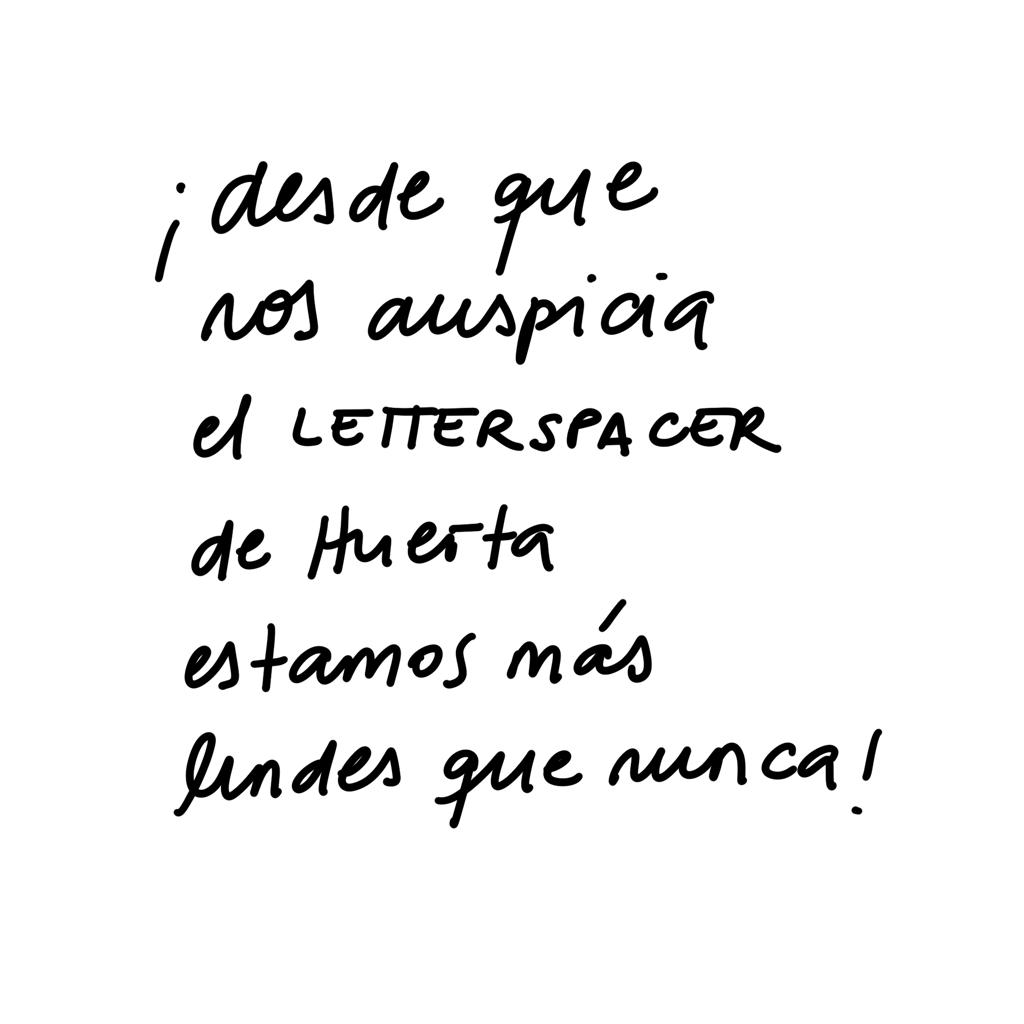 ¡desde que
nos auspicia
el LETTERSPACER
de Huerta
estamos más
lindes que nunca!